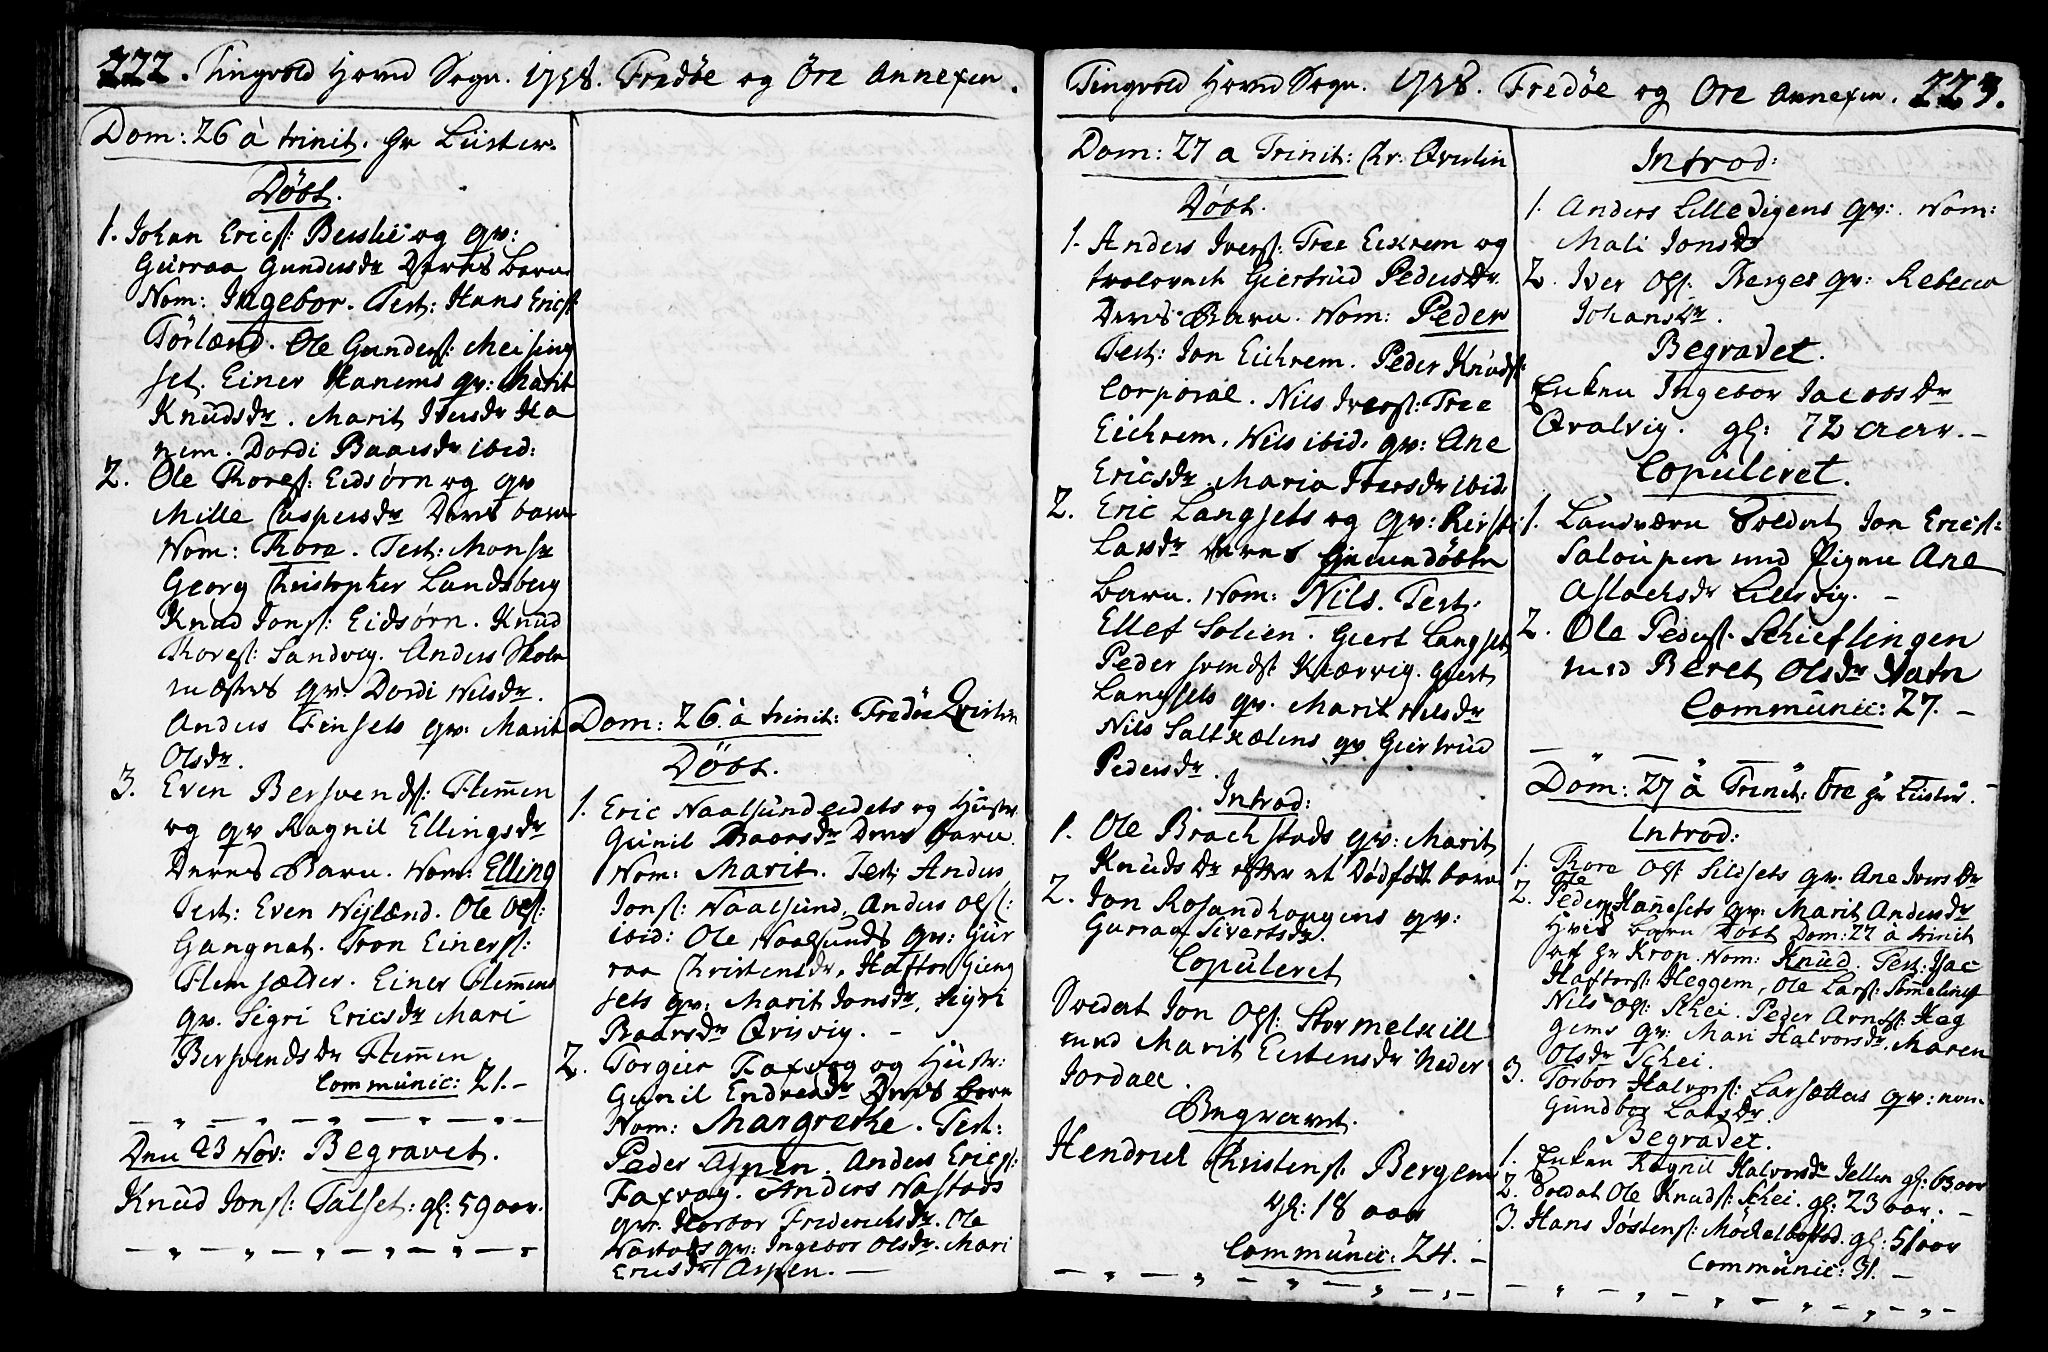 222. Tingvold Hovud Sogn. 1758. Fredöe og Öre Annexen.
Dom: 26 à trinit. Hr Lüster.
Döbt.
1. Johan Erics: Beslie og qv:
Gurraa Gundersdr Deres barn
Nom: Ingebor. Test: Hans Erics:
Törlænd. Ole Gunders: Meising
set. Einer Hanems qv: Marit
Knudsdr. Marit Iversdr Ha
nem. Dordi Baarsdr ibid:
2. Ole Thores: Eidsörn og qv
Mille Caspersdr Deres barn
Nom: Thore. Test: Monsr
Georg Christopher Landsberg
Knud Jons: Eidsörn. Knud
Thores: Sandvig. Anders Skole
mesters qv. Dordi Nilsdr.
Anders Finsets qv: Marit
Olsdr.
3. Even Bersvends: Flemen
og qv Ragnil Ellingsdr
Deres Barn. Nom: Elling
Test: Even Nylænd. Ole Ols:
Gangnat. Tron Einers:
Flemsælder. Einer Flemens
qv. Sigri Ericsdr Mari
Bersvendsdr Flemen.
Communic: 21.-
Den 23 Nov: Begravet.
Knud Jons: Talset: gl: 59 aar.
Dom: 26 à trinit: Fredöe Qvistin
Döbt.
1. Eric Naalsundeidets og Hustr
Gunil Baarsdr Deres barn.
Nom: Marit. Test: Anders
Jons: Naalsund. Anders Ols:
ibid: Ole Naalsunds qv: Gur
raa Christensdr. Haftor Gieng
sets qv: Marit Jonsdr. Sigri
Baarsdr Qvisvig. -
2. Torgier Faxvog og Hustr:
Gunil Endresdr Deres barn
Nom: Margrethe. Test:
Peder Aspen. Anders Erics:
Faxvog. Anders Nastads
qv. Horbor Friderichsdr. Ole
Nastads qv: Ingebor Olsdr. Mari
Ericsdr Aspen. -
Tingvold Hovud Sogn. 1758. Fredöe og Öre Annexen. 223.
Dom: 27 a Trinit: Hr: Qvistin
Döbt.
1. Anders Ivers: Tree Eickrem og
trolovede Giertrud Pedersdr
Deres Barn. Nom: Peder
Test: Jon Eichrem. Peder Knuds:
Corporal. Nils Ivers: Tree
Eichrem. Nils ibid. qv: Ane
Ericsdr. Maria Iversdr ibid.
2. Eric Langsets og qv: Kirsti
Larsdr Deres
barn. Nom: Nils. Test:
Ellef Solien. Giert Langset,
Peder Svends: Kiærvig. Giert
Langsets qv. Marit Nilsdr
Nils Saltkælens qv Giertrud
Pedersdr.
Introd:
1. Ole Brachstads qv: Marit
Knudsdr efter et Dödfödt barn
2. Jon Rosandhougens qv:
Guraa Sivertsdr.
Copuleret
Soldat Jon Ols: Stormelkill
med Marit Eistensdr Neder
Jordall.
Begravet.
Hendrich Christens: Bergem
gl: 18 aar
Communic: 24. -
Introd:
1. Anders Lilledigens qv: Nom:
Mali Jonsdr
2. Iver Ols: Berges qv: Rebecca
Johansdr.
Begravet.
Enken Ingebor Jacobsdr
Qvalvig. gl: 72 aar. -
Copuleret.
1. Landværn Soldat Jon Erics:
Saloupen med Pigen Ane
Aslachsdr Lillevig. -
2. Ole Peders: Schieflingen
med Beret Olsdr Vatn
Communic: 27. -
Dom: 27 à Trinit: Öre Hr Lüster.
Introd:
1. Thore Ols: Sildsets qv. Ane Iversdr
2. Ole Peders: Hanesets qv: Marit Andersdr
Hvis barn Döbt Dom: 22 à trinit
af Hr Krop. Nom: Knud. Test: Isac
Haftors: Heggem, Ole Lars:
Nils Ols: Schei. Peder Arnes: Heg
gems qv: Mari Halvorsdr. Maren
Olsdr Schei.
3. Torbor Halvors: Larsættes qv: nom:
Gundbor Larsdr.
Begravet.
1. Enken Ragnil Halvorsdr Jellen gl: 63 aar
2. Soldat Ole Knuds: Schei. gl: 23 aar. -
3. Hans Jöstens: Möckelbostad. gl: 51 aar
Communic: 31. -